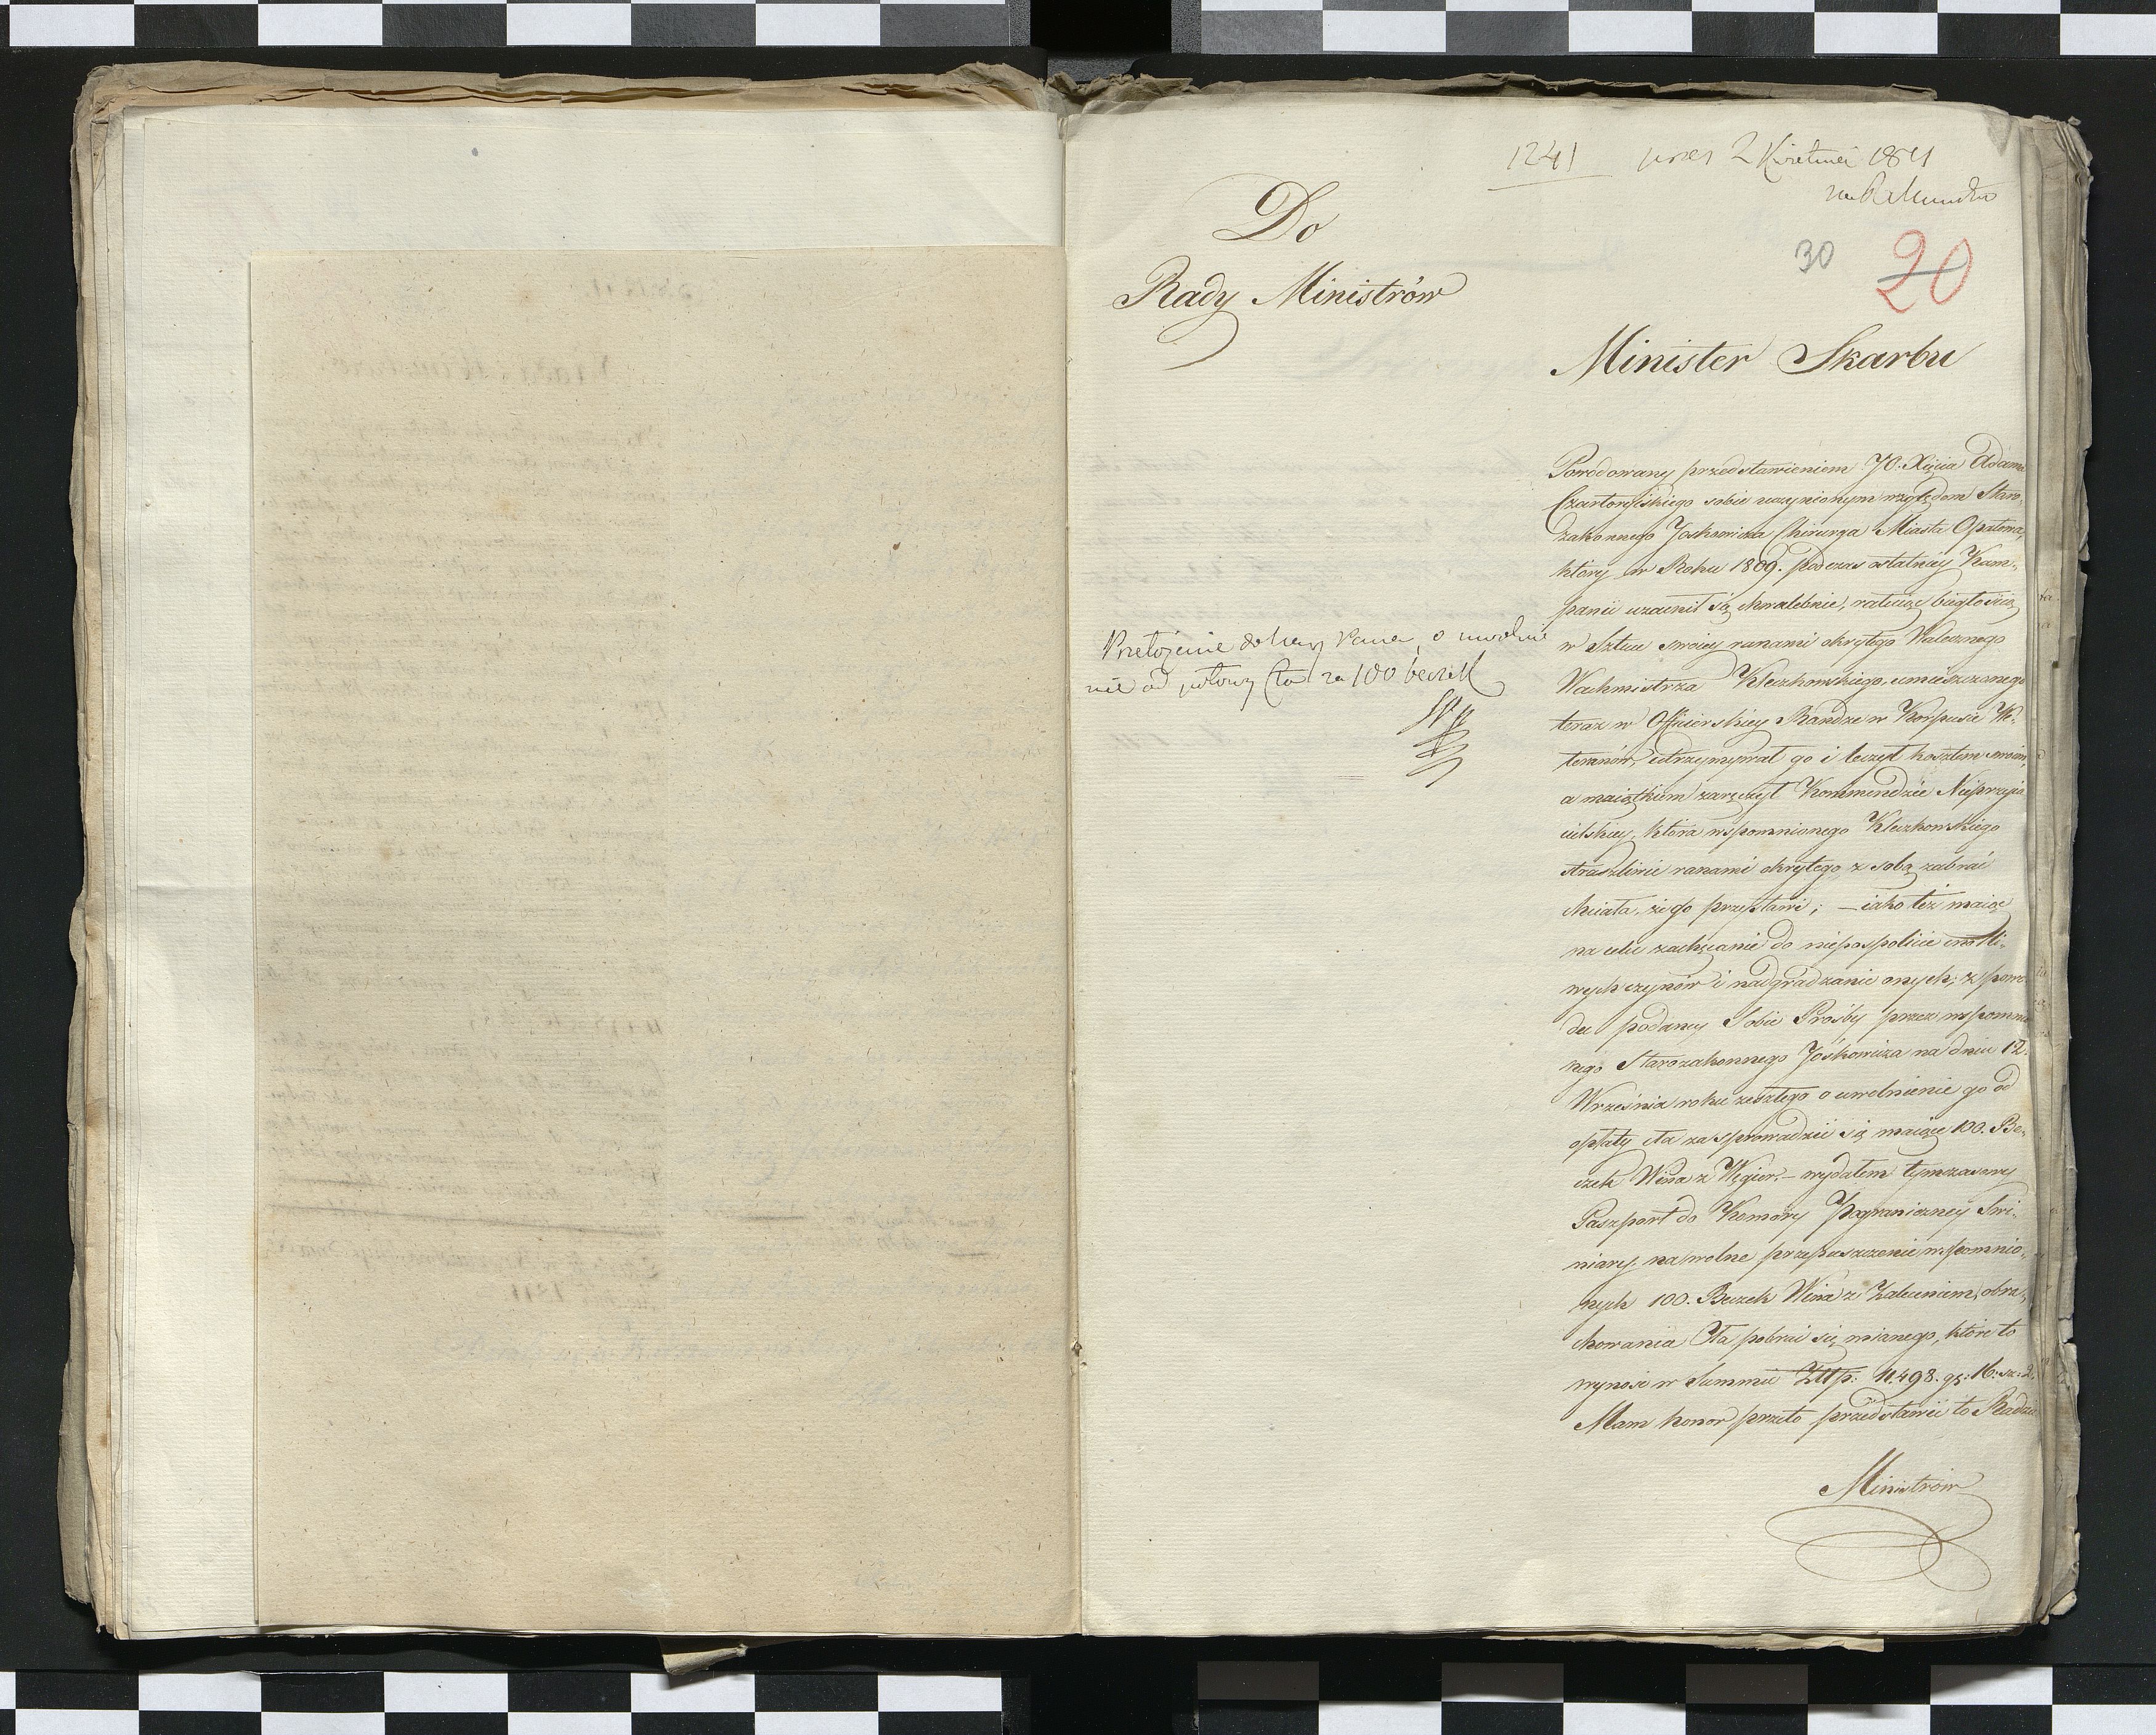 1241 2 Kwietnia 1811
30 20
Do
Rady Ministrów
Minister Skarbu
Powodowany przedstawieniem JO. Xięcia Adama
Czartoryiskiego sobie uczynionym względem Staro-
zakonnego Joskowicza Chirurga Miasta Opatowa,
który w Roku 1809. podczas ostatniey Kam-
panii uzacnił się chwalebnie, ratuiąc biegłością
w Sztuce swoiey ranami okrytego Walecznego
Wachmistrza Kleczkowskiego, umieszczonego
teraz w Officierskiey Randze w Korpusie We-
teranów, utrzymywał go i leczył kosztem swoim,
a maiątkiem zaręczył Kommendzie Nieprzyia
cielskiey, która wspomnionego Kleczkowskiego
straszliwie ranami okrytego z sobą zabrać
chciała, że go przystawi; – iako też maiąc
na celu zachęcanie do niepospolicie cnotli-
wych czynów i nadgradzanie onych; z powo
du podaney Sobie Prośby przez wspomnio
nego Starozakonnego Joskowicza na dniu 12.
Września roku zeszłego o uwolnienie go od
opłaty cła za sprowadzić się maiące 100. Be-
czek Wina z Węgier. – wydałem tymczasowy
Paszport do Komory Pograniczney Swi-
niary, na wolne przepuszczenie wspomnio-
nych 100. Beczek Wina z Zaleceniem obra-
chowania Cła pobrać się mianego, które to
wynosi w Summie Złłp: 11.498. gr: 16. sz: 2.
Mam honor przeto przedstawić to Radzie
Ministrów
Przełożenie do Nay. Pana, o uwolnie
nie od połowy Cła za 100 beczek